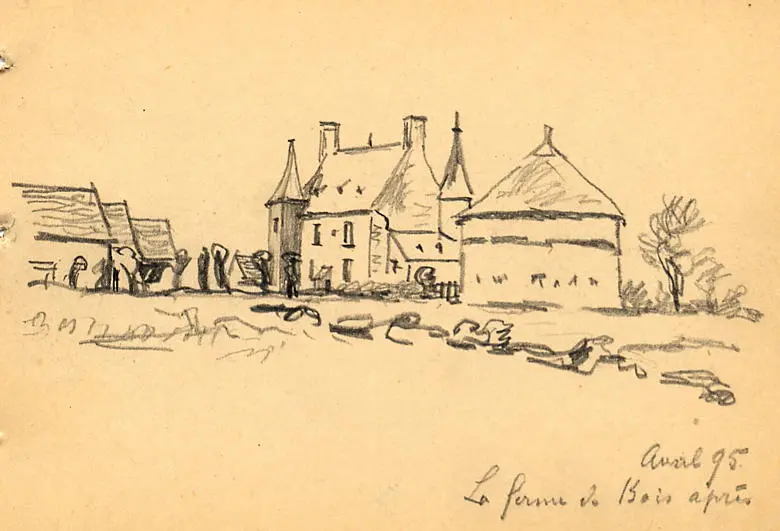 Avril 95.
La ferme de Bois après